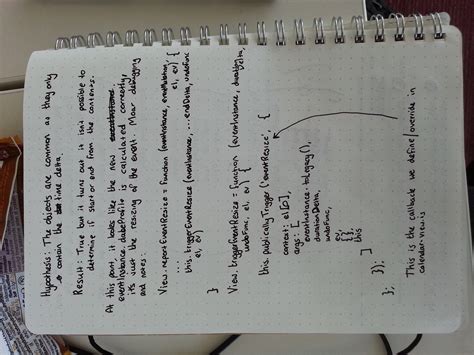 Hypothesis: The objects are common as they only
→ contain the time delta.
Result: True but it turns out it isn't possible to
determine if start or end from the contents.
At this point, it looks like the new
eventInstance.dateProfile is calculated correctly,
it's just the resizing of the event. Moar debugging
and notes:
View.reportEventResize = function (eventInstance, eventMutation,
el, ev) {
...
this.triggerEventResize (eventInstance, ...endDelta, undoFunc
el, ev)
}
View.triggerEventResize = function (eventInstance, durationDelta,
undoFunc, el, ev) {
this.publiclyTrigger ('eventResize', {
context: el[0],
args: [
eventInstance.toLegacy(),
durationDelta,
undoFunc,
ev,
{},
this
]
});
};
This is the callback we define/override in
calendar-view.js